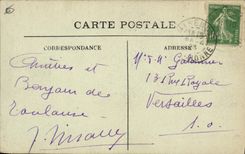 CARTE POSTALE
CORRESPONDANCE
ADRESSE
Amitiés et
Bonjour de
Toulouse
J.
Mr & Me
13 Rue Royale
Versailles
S. O.